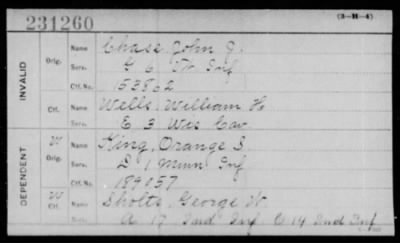 231260
(3-M-4)
INVALID
Orig.
Name Chase, John J.
Serv. G 6 Inf
Ctf. No. 153862
Ctf.
Name Wells, William H
Serv. E 3 Wis Cav
DEPENDENT
W
Orig.
Name King, Orange S.
Serv. D 1 Minn Inf
Ctf. No. 189057
W
Ctf.
Name Sholts, George W.
Serv. A 17 Ind Inf G 14 Ind Inf